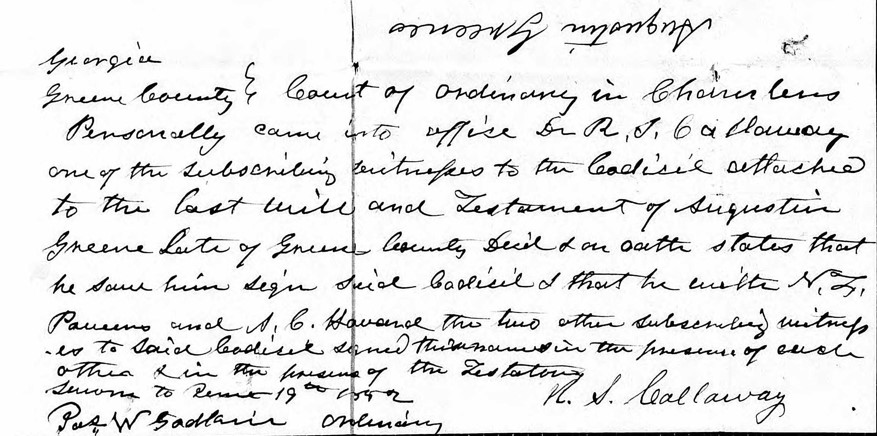 Augustin Greene
Georgia
Greene County } Court of ordinary in Chambers
Personally came into office Dr R. S. Callaway
one of the subscribing witnesses to the Codisil attached
to the last will and Testament of Augustin
Greene Late of Greene County Decd & on oath states that
he saw him sign said Codisil & that he with N. Z.
and A. C. the two other subscribing witness
-es to said Codisil signed their names in the presence of each
other & in the presence of the Testator
Sworn to 19th
R. S. Callaway
W ordinary